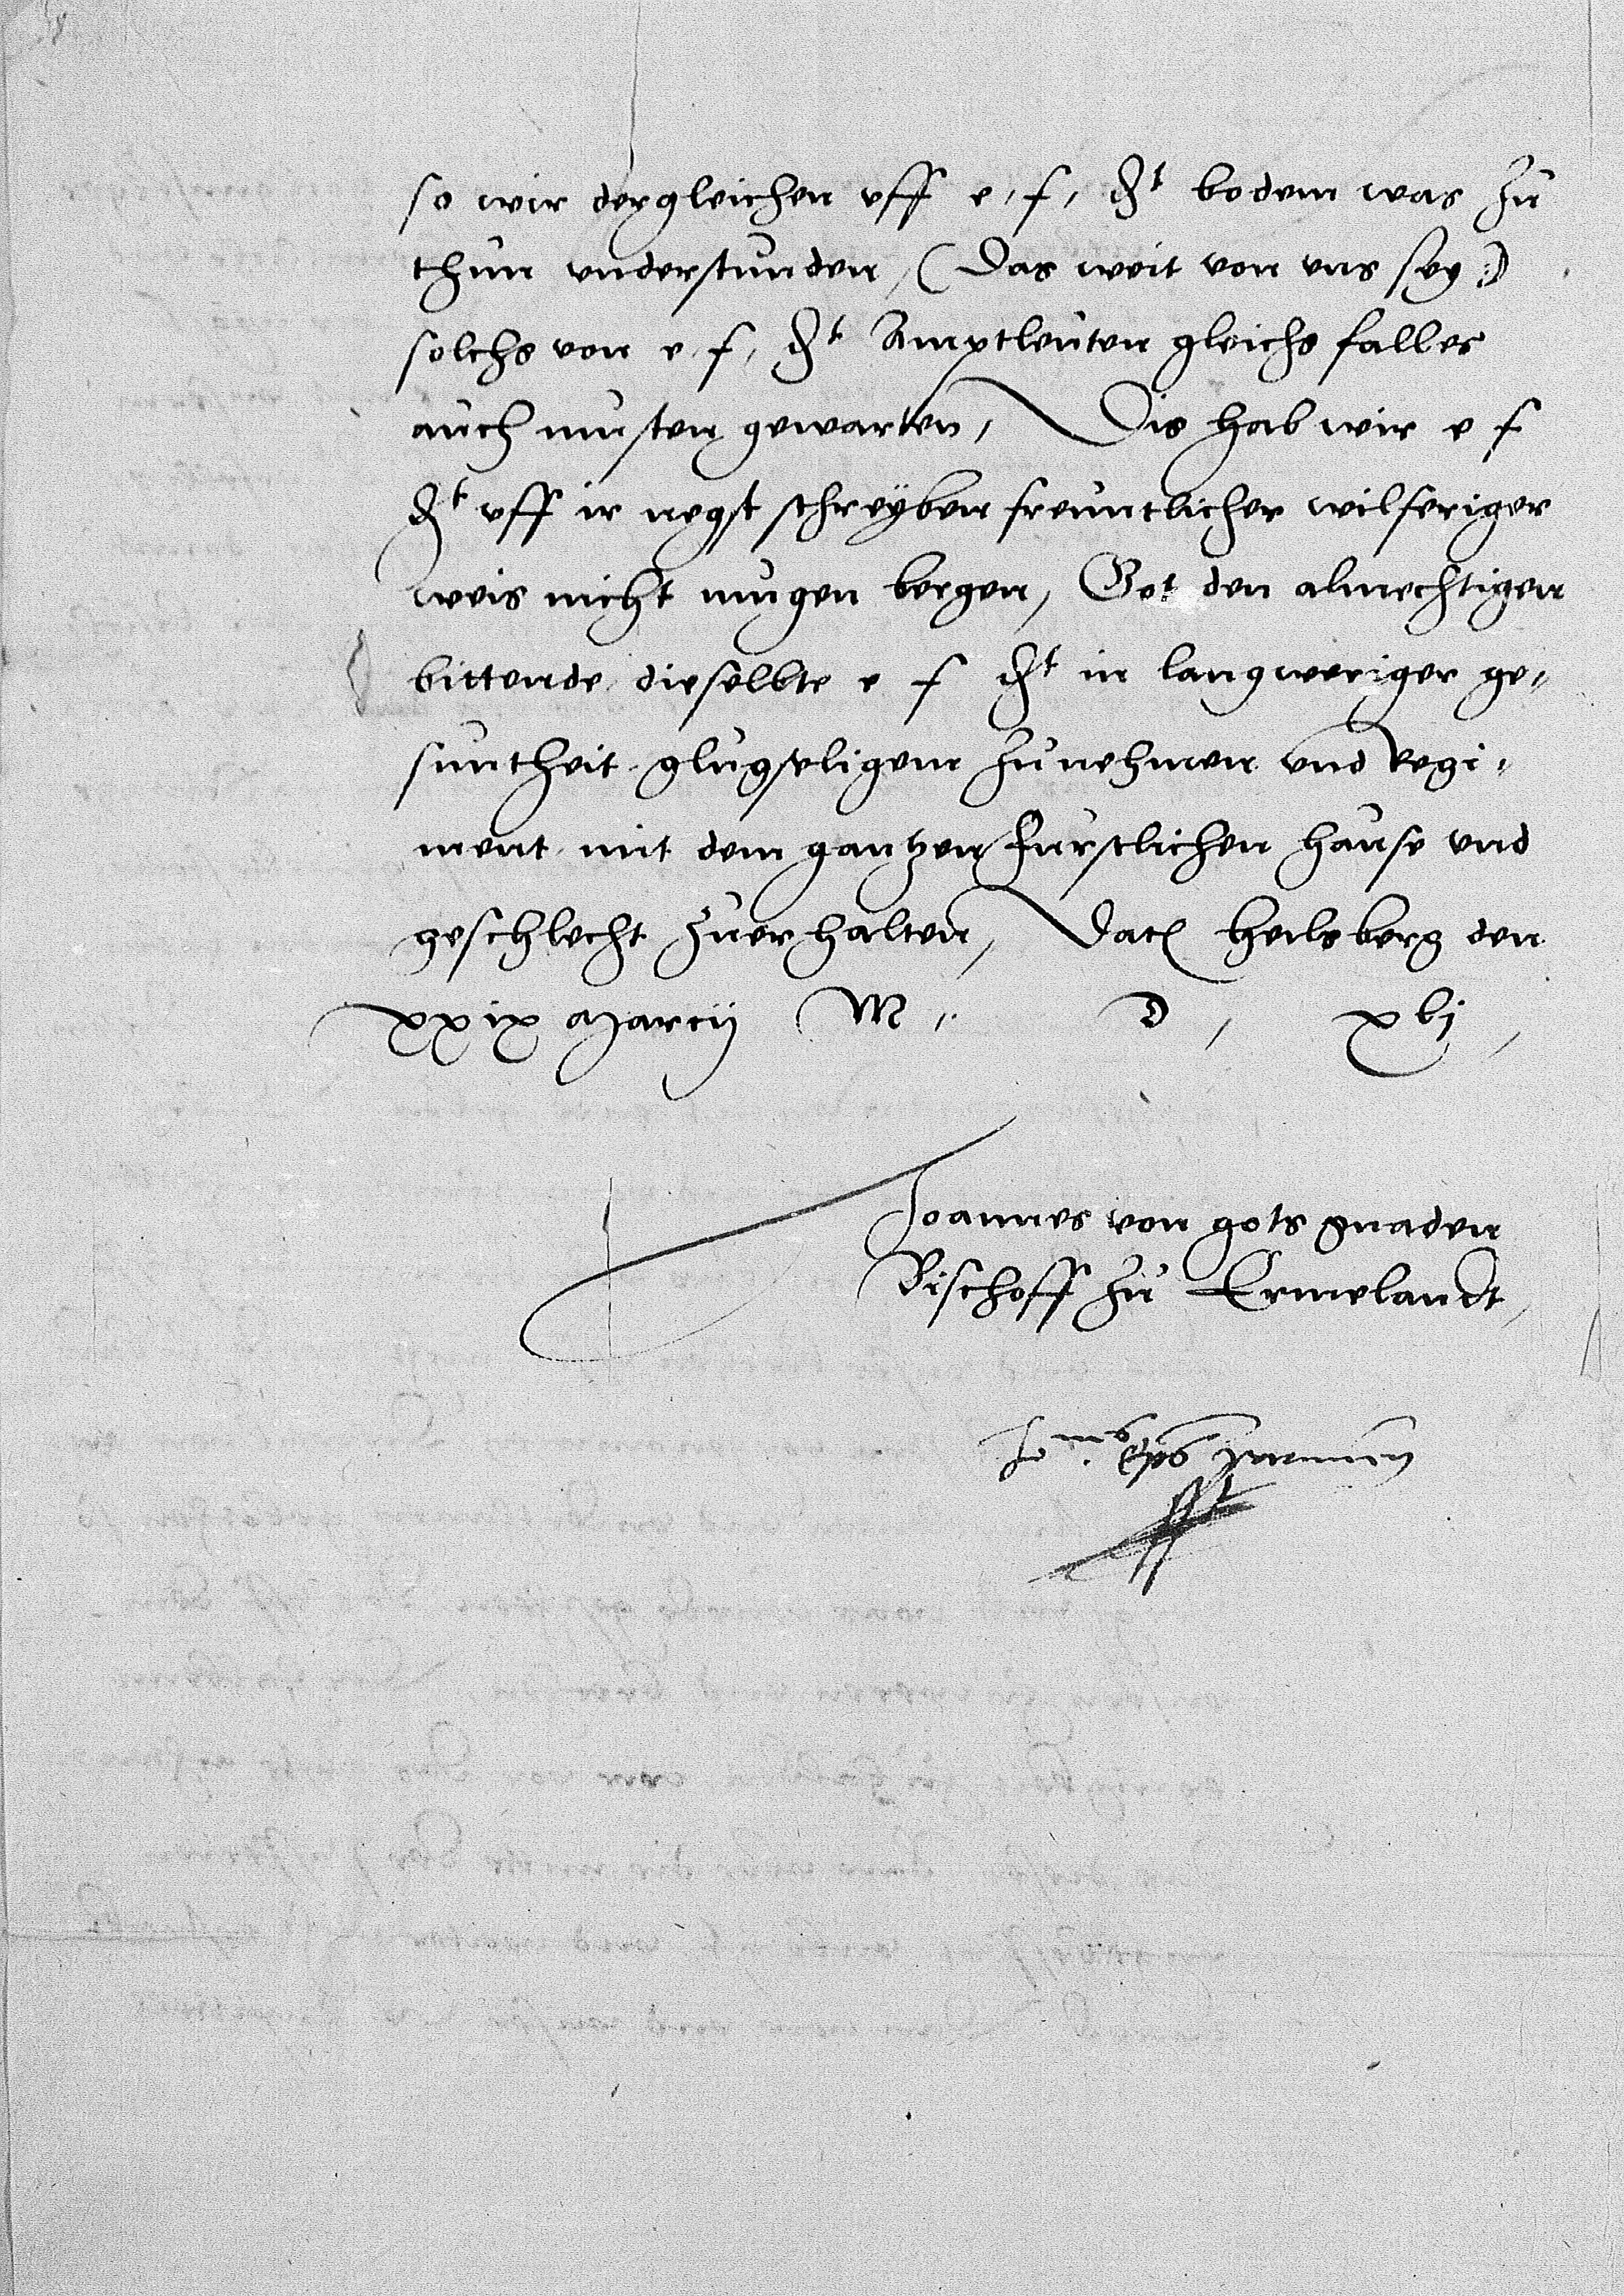 so wir dergleichen vff e, f, dt bodem was zu
thun vnderstunden, (Das weit von vns sey:)
solchs von e, f, dt Amptleuten gleichs falles
auch musten gewarten, Dis hab wir e f
dt vff ir negst schreyben freuntlicher wilferiger
weis nicht mugen bergen, Got den almechtigen
bittende, dieselbte e f dt in langweriger ge,,
suntheit, glugseligem zunehmen vnd Regi,,
ment, mit dem gantzen furstlichen hause vnd
geschlecht zuerhalten, Dat heilsberg den
xxix Marcij M,, D, xlvj,
Joannes von gots gnaden
Bischoff zu Ermelandt,
Jo. Eps